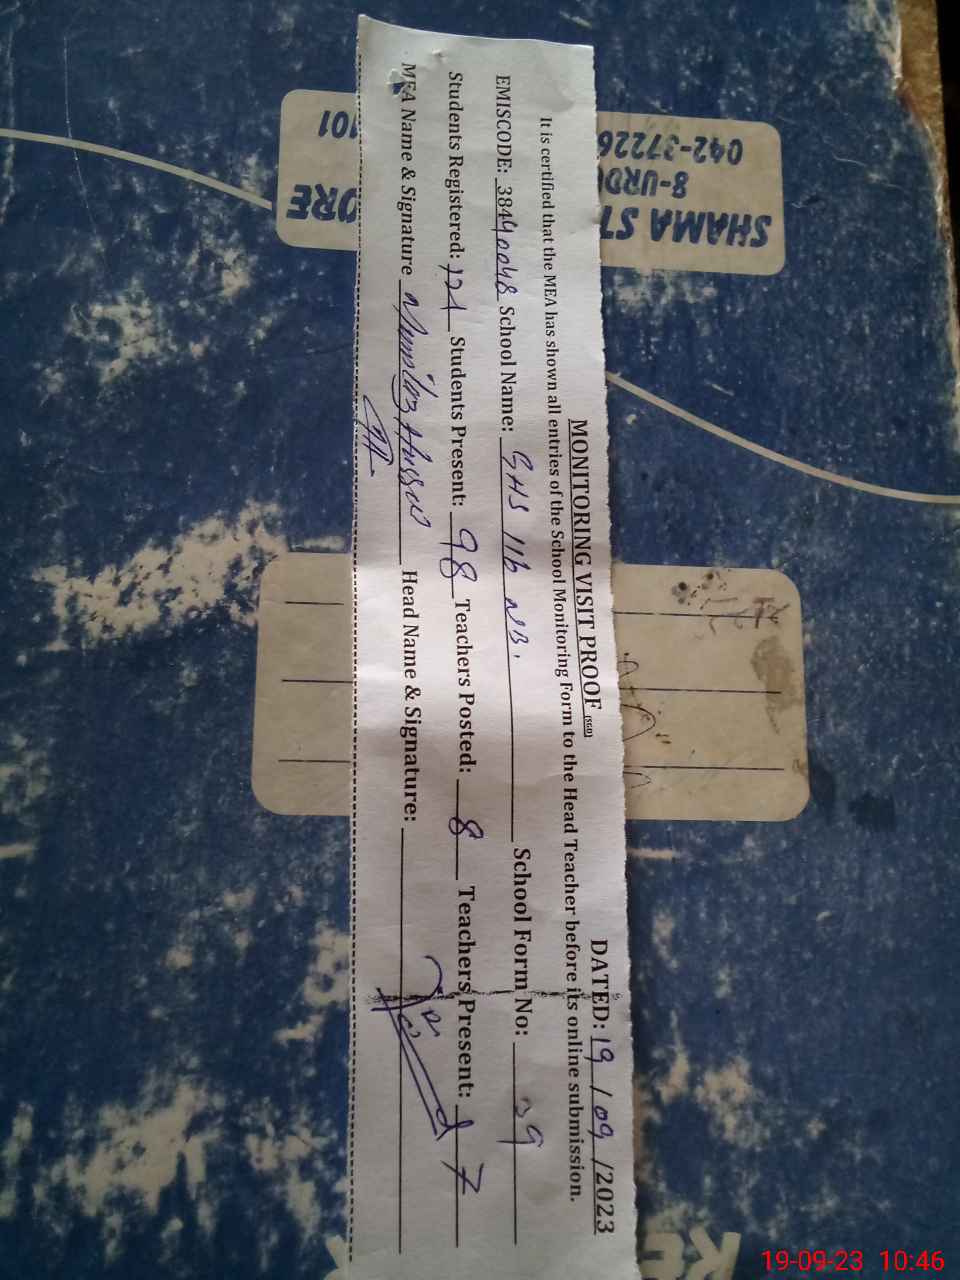 MONITORING VISIT PROOF (SGD) DATED: 19 / 09 /2023
It is certified that the MEA has shown all entries of the School Monitoring Form to the Head Teacher before its online submission.
EMISCODE: 38440048 School Name: GHS 116 NB. School Form No: 39
Students Registered: 121 Students Present: 98 Teachers Posted: 8 Teachers Present: 7
MEA Name & Signature Mumtaz Hussain Head Name & Signature:
SHAMA ST
8-URD
042-37226
ORE
101
19-09-23 10:46